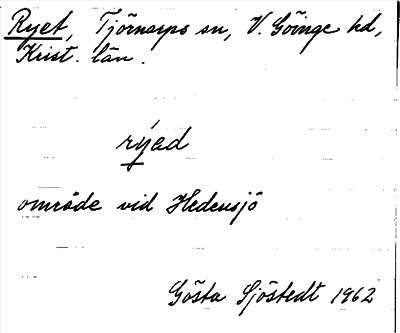 Ryet, Tjörnarps sn, V. Göinge hd,
Krist. län.
rýed
område vid Hedensjö
Gösta Sjöstedt 1962